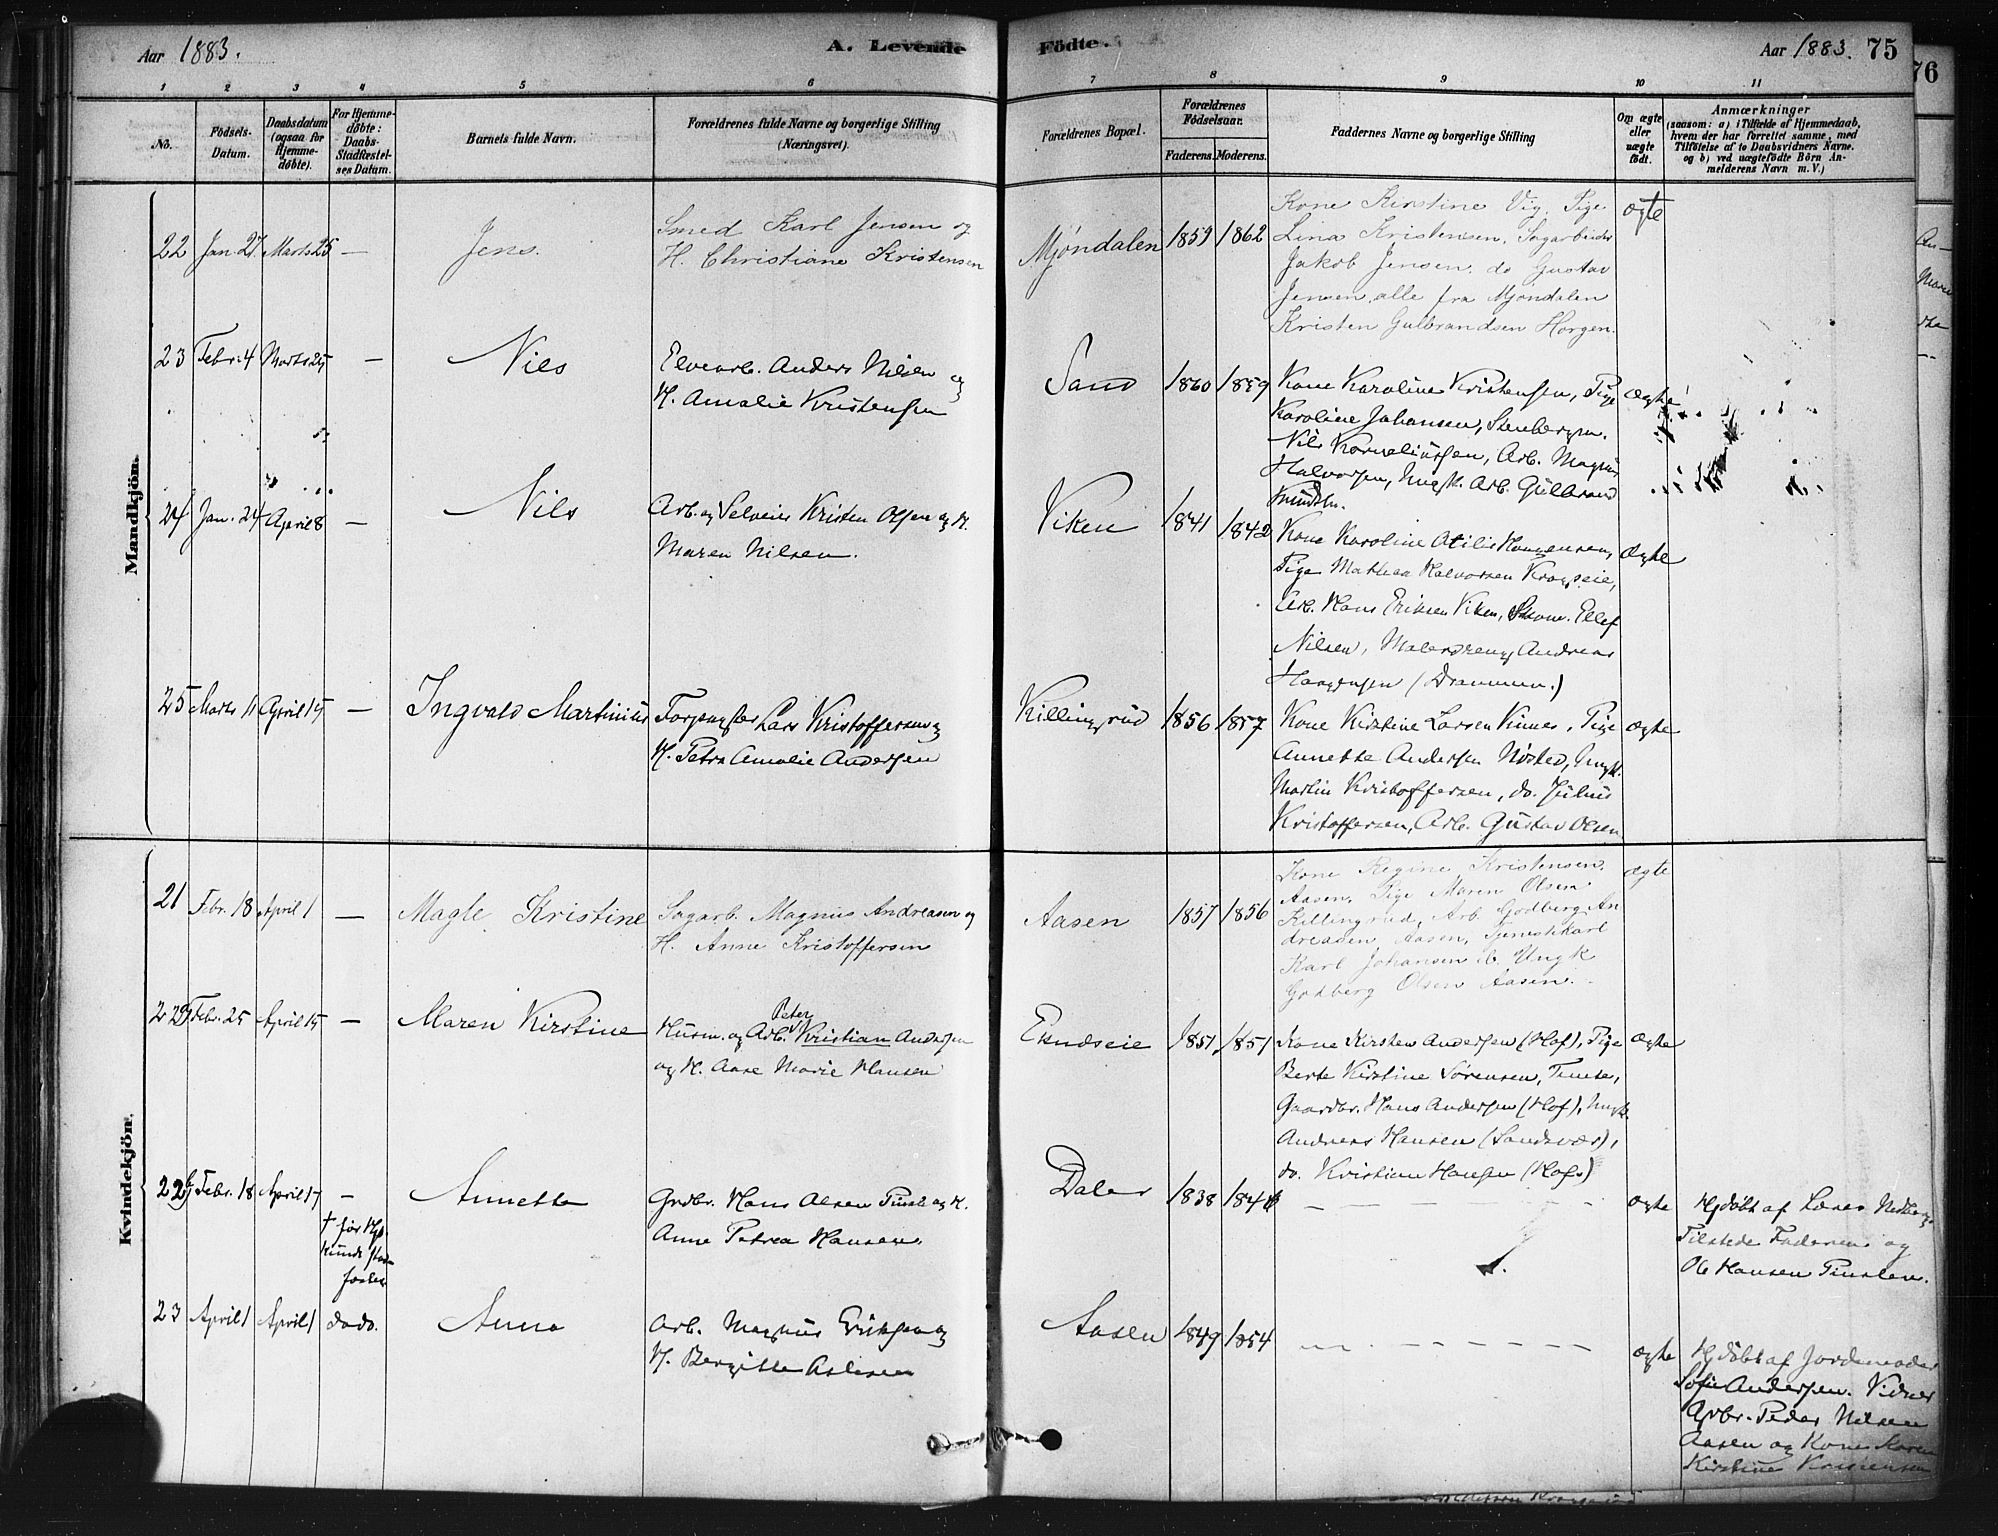 Aar 1883. A. Levende Födte. Aar 1883. 75
76
1 2 3 4 5 6 7 8 9 10 11
No.
Födsels-
Datum.
Daabsdatum
(ogsaa for
Hjemme-
døbte).
For Hjemme-
døbte:
Daabs-
Stadfæstel-
ses Datum.
Barnets fulde Navn.
Forældrenes fulde Navne og borgerlige Stilling
(Næringsvei).
Forældrenes Bopæl.
Forældrenes
Födselsaar.
Faderens. Moderens.
Faddernes Navne og borgerlige Stilling
Om ægte
eller
uægte
født.
Anmærkninger
(saasom: a) i Tilfælde af Hjemmedaab,
hvem der har forrettet samme, med
Tilføielse af to Daabsvidners Navne.
og b) ved uægtefødte Börn An-
melderens Navn m. V.)
Mandkjön.
22 Jan. 27 Marts 25 — Jens.
Smed Karl Jensen og
H. Christiane Kristensen
Mjöndalen 1859 1862
Kone Kirstine Vig. Pige
Lina Kristensen, Sagarbeider
Jakob Jensen, do Gustav
Jensen, alle fra Mjöndalen
Kristen Gulbrandsen Horgen.
ægte
23 Febr. 4 Marts 25 — Nils
Elvearb. Anders Nilsen og
H. Amalie Kristensen
Sand 1860 1859
Kone Karoline Kristensen, Pige
Karoline Johansen, Stenbergsm.
Nils Korneliussen, Arb. Magnus
Halvorsen, Ungk. Arb. Gulbrand
Knudsen.
ægte
24 Jan. 24 April 8 — Nils
Arb. og Selveier Kristen Olsen og H.
Maren Nilsen.
Viken 1841 1842
Kone Karoline Otilie Haagensen,
Pige Mathea Halvorsen Kragseie,
Arb. Hans Eriksen Viken, Skom. Ellef
Nilsen, Malerdreng Andreas
Haagensen (Drammen.)
ægte
25 Marts 11 April 15 — Ingvald Martinius
Forpagter Lars Kristoffersen og
H. Petra Amalie Andersen
Killingrud 1856 1857
Kone Kirstine Larsen Kinnes, Pige
Annette Andersen Nøsted, Ungk.
Martin Kristoffersen, do. Julius
Kristoffersen, Arb. Gustav Olsen
ægte
Kvindekjön.
21 Febr. 18 April 1 — Magle Kristine
Sagarb. Magnus Andreasen og
H. Anne Kristoffersen
Aasen 1857 1856
Kone Regine Kristensen
Aasen, Pige Maren Olsen
Killingrud, Arb Godberg An
dreasen, Aasen, Tjenestekarl
Karl Johansen ib. Ungk
Godberg Olsen Aasen.
ægte
22 Febr. 25 April 15 — Maren Kirstine
Peter
Husm. og Arb. Kristian Andersen
og H. Aase Marie Hansen
Ekndseie 1851 1851
Kone Kirsten Andersen (Hof), Pige
Berte Kirstine Sørensen, Tinste,
Gaardbr. Hans Andersen (Hof), Ungk.
Andreas Hansen (Sandsvær),
do. Kristian Hansen (Hof)
ægte
22 Febr. 18 April 17 —
† før Hjd.
kunde stad-
fæstes
Annette
Grdbr. Hans Olsen Tinste og H.
Anne Petrea Hansen.
Daler 1838 1841
— — — — — —
ægte
Hjdöbt af Lærer
Tilstede Faderen og
Ole Hansen Tinsten.
23 April 1 April 1 dodo. Anna
Arb. Magnus Eriksen og
H. Bergitte Aslesen
Aasen 1849 1854
— — — — — —
ægte
Hjdöbt af Jordemoder
Sofie Andersen. Vidner
Grbr. Peder Nilsen
Aasen og Kone Karen
Kirstine